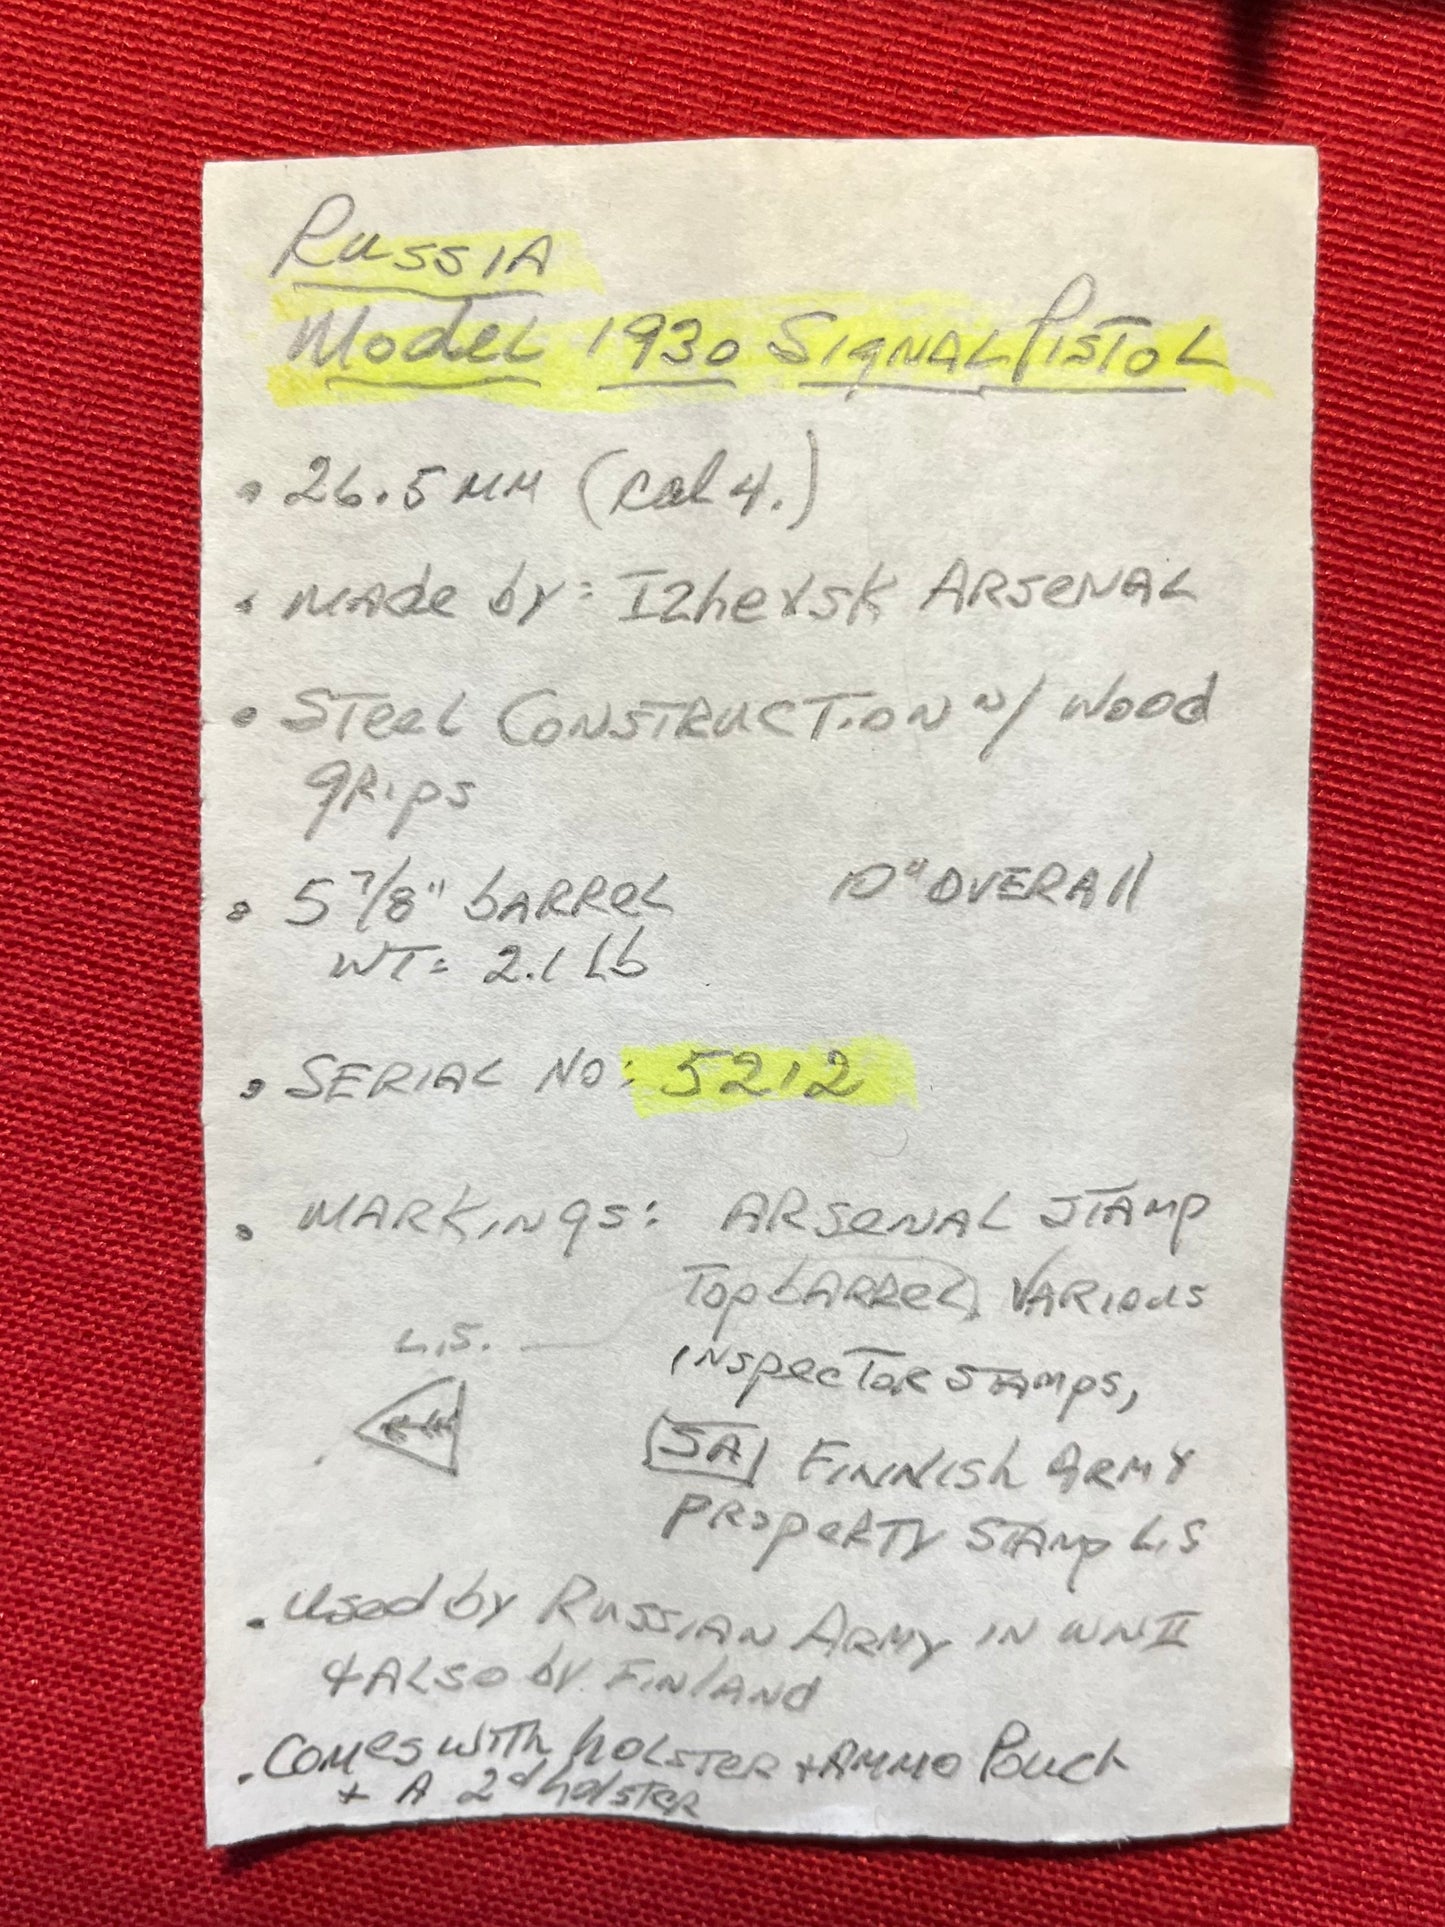 Russia
Model 1930 Signal Pistol
• 26.5 MM (Cal 4.)
• Made by: Izhevsk Arsenal
• Steel Construction w/ Wood
grips
• 5 7/8" barrel 10" overall
WT= 2.1 Lb
• Serial No: 5212
• Markings: Arsenal Stamp
Top barrel, Various
L.S.
inspector stamps,
SA Finnish Army
property stamp L.S
• Used by Russian Army in WWII
+ Also by Finland
• Comes with holster + Ammo Pouch
+ A 2d holster